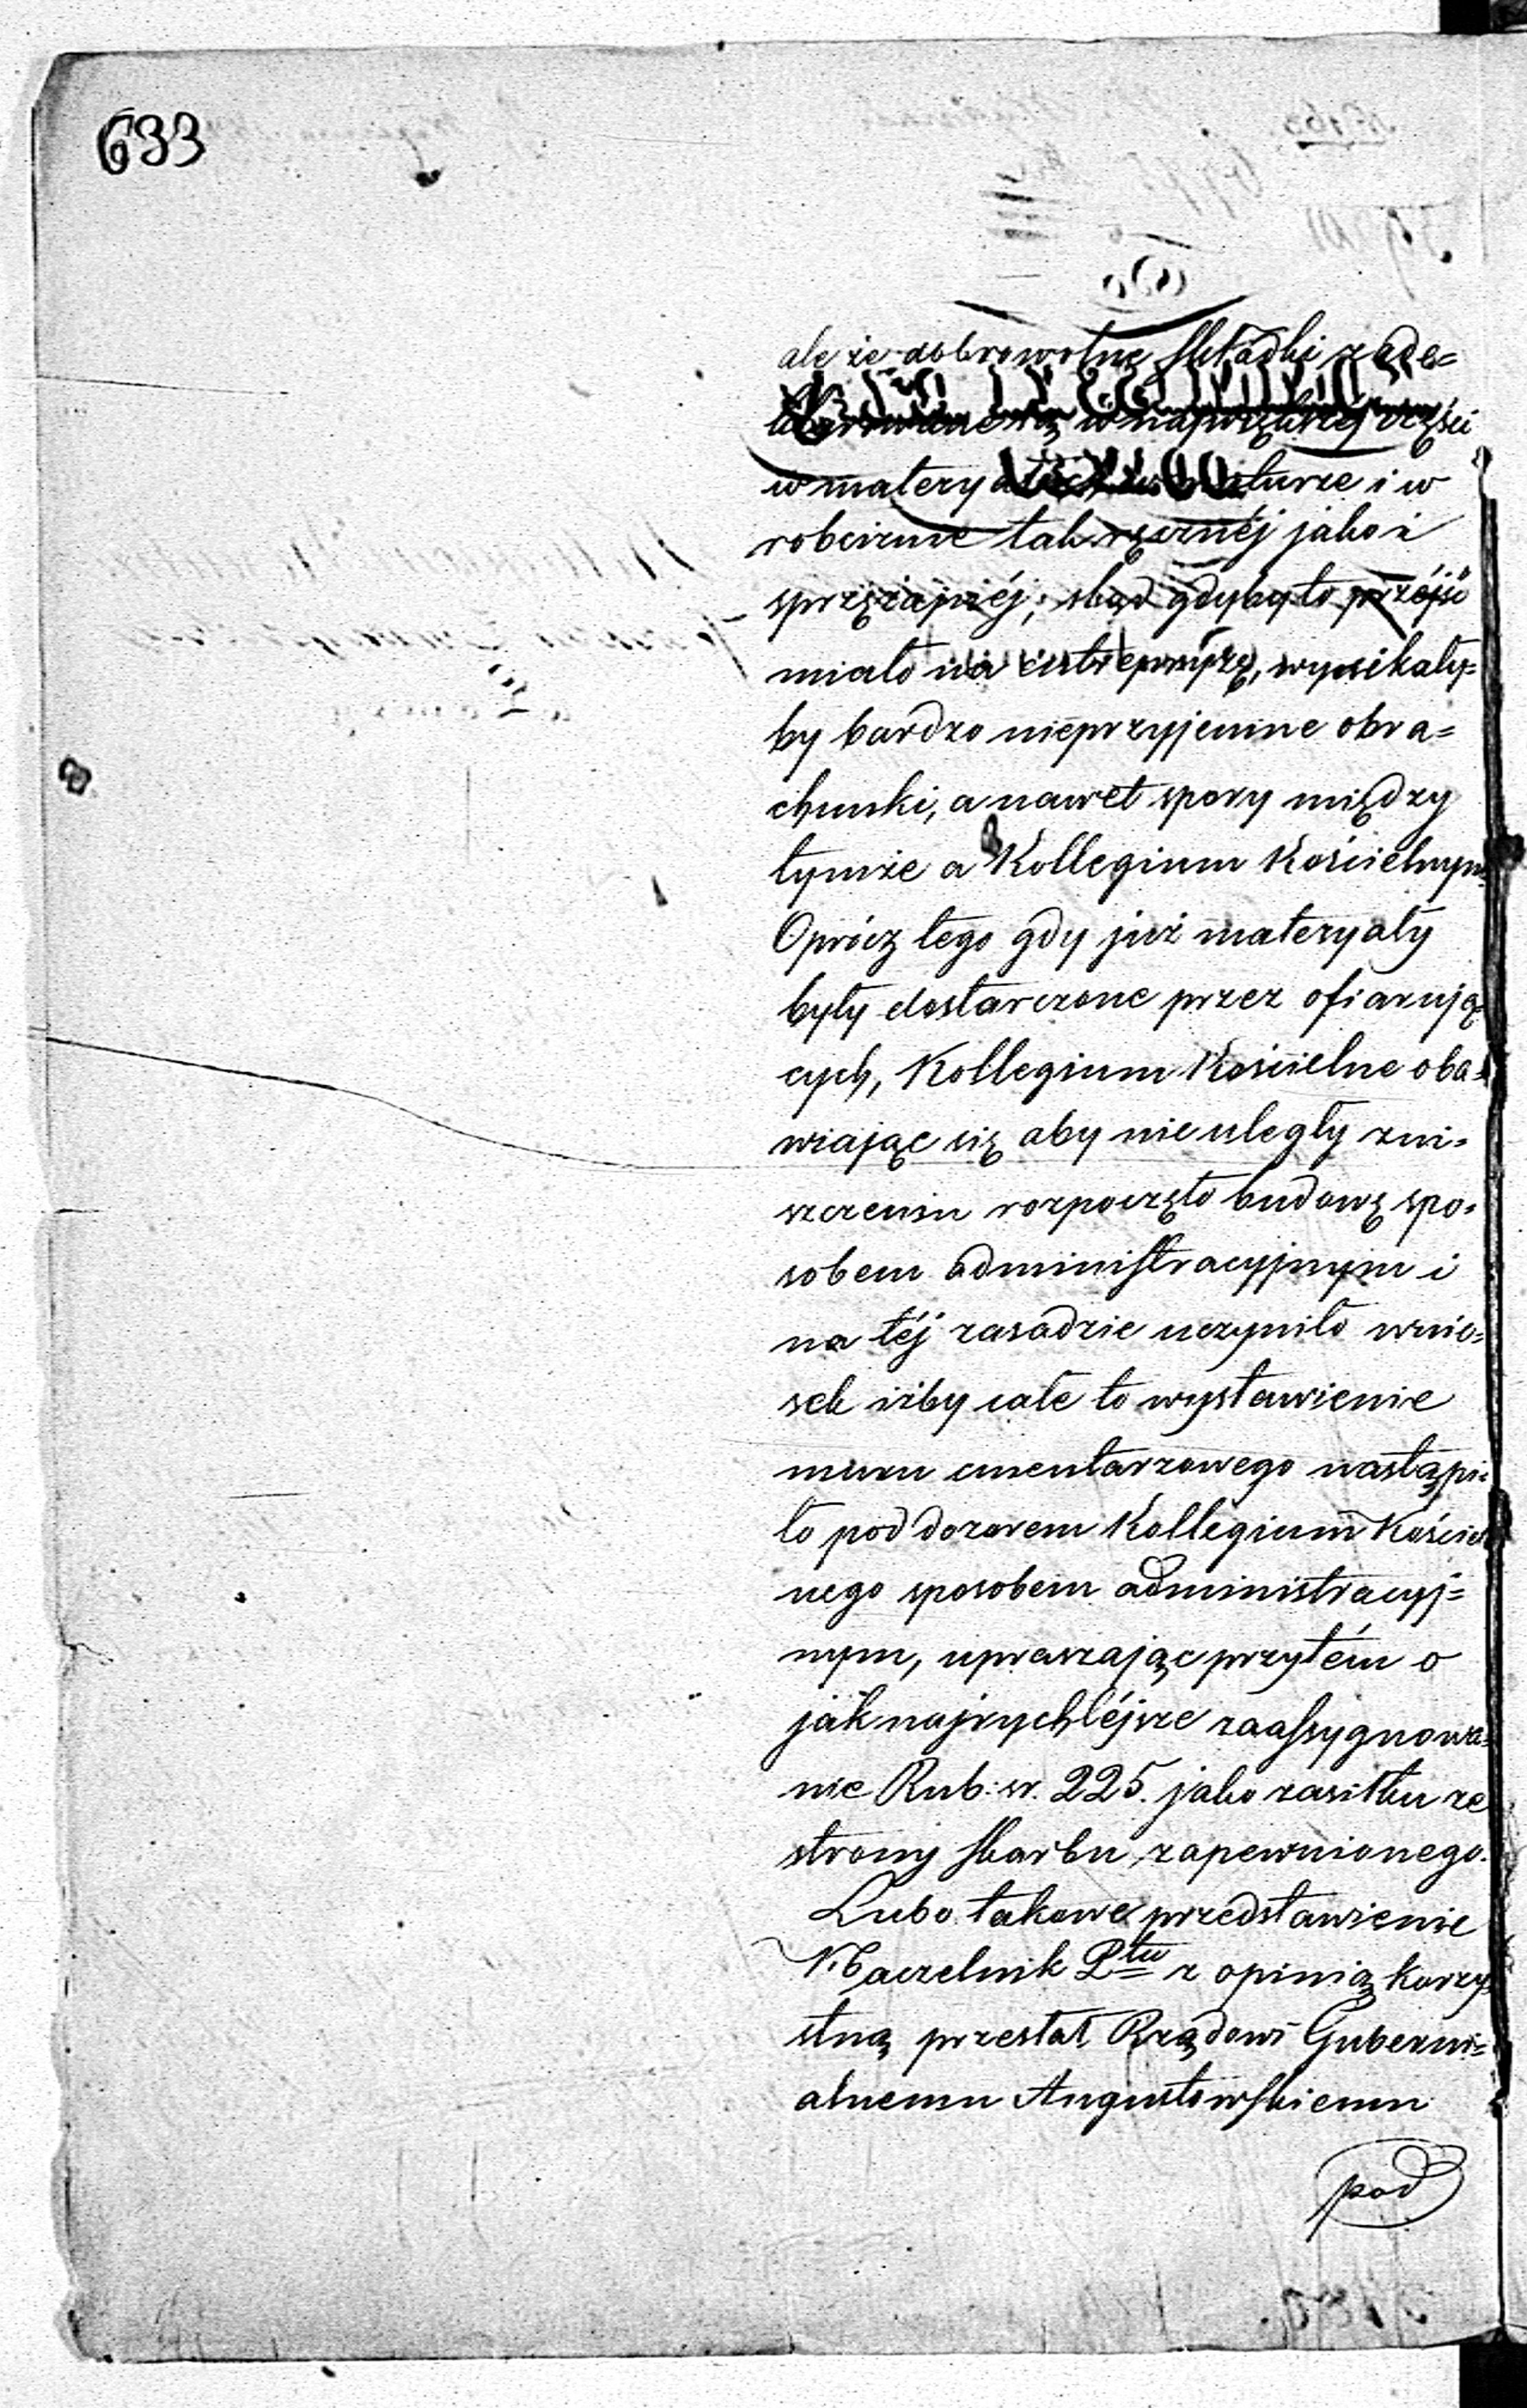 633
ale że dobrowolne składki zade=
klarowane są w największej części
w materyałach w naturze i w
robciznie tak ręcznéj jako i
sprzężajnéj; skąd gdyby to przéjść
miało na entrepryzę, wynikały=
by bardzo nieprzyjemne obra=
chunki, a nawet spory między
tymże a Kollegium Kościelnym.
Oprócz tego gdy już materyały
były dostarczone przez ofiarują=
cych, Kollegium Kościelne oba=
wiając się aby nie uległy zni=
szczeniu rozpoczęło budowę spo=
sobem administracyjnym i
na téj zasadzie uczyniło wnio=
sek iżby całe to wystawienie
muru cmentarzowego nastąpi=
ło pod dozorem Kollegium Kościel
nego sposobem administracyj=
nym, upraszając przytém o
jaknajrychléjsze zaassygnowa=
nie Rub: sr. 225. jako zasiłku ze
strony skarbu zapewnionego.
Lubo takowe przedstawienie
Naczelnik Ptu z opinią korzy=
stną przesłał Rządowi Guberni=
alnemu Augustowskiemu
pod